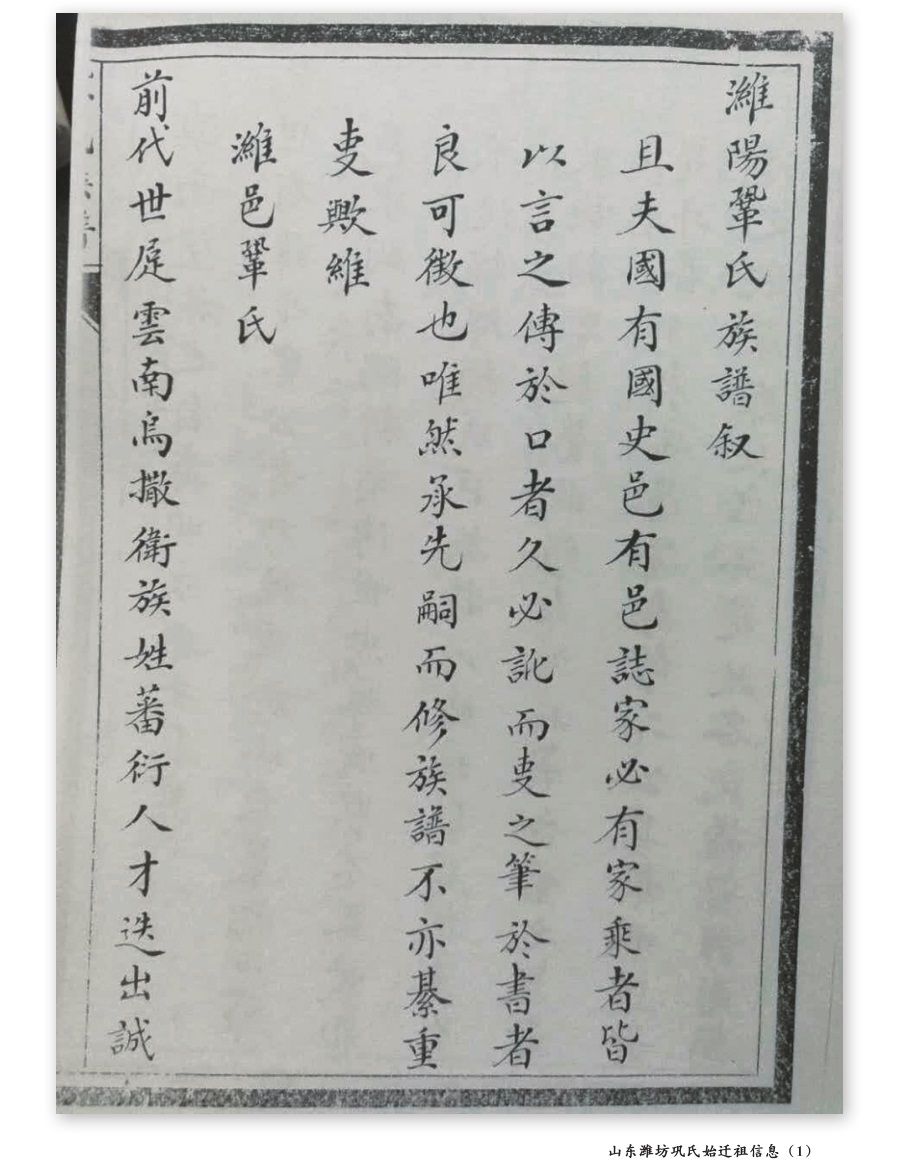 濰陽鞏氏族譜叙
且夫國有國史邑有邑誌家必有家乘者皆
以言之傳於口者久必訛而叓之筆於書者
良可徵也唯然承先嗣而修族譜不亦綦重
叓歟維
濰邑鞏氏
前代世居雲南烏撒衛族姓蕃衍人才迭出誠
山东潍坊巩氏始迁祖信息（1）